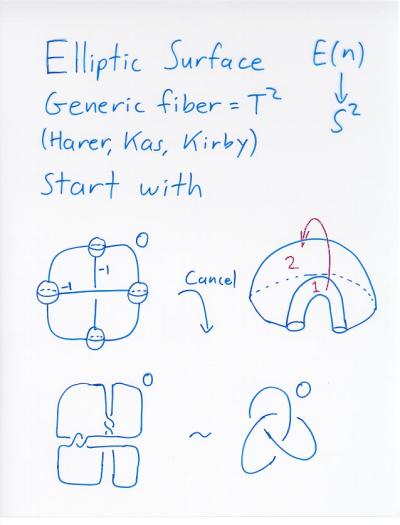 Elliptic Surface
E(n)
↓
S²
Generic fiber = T²
(Harer, Kas, Kirby)
Start with
0
-1
-1
Cancel
2
1
0
~
0